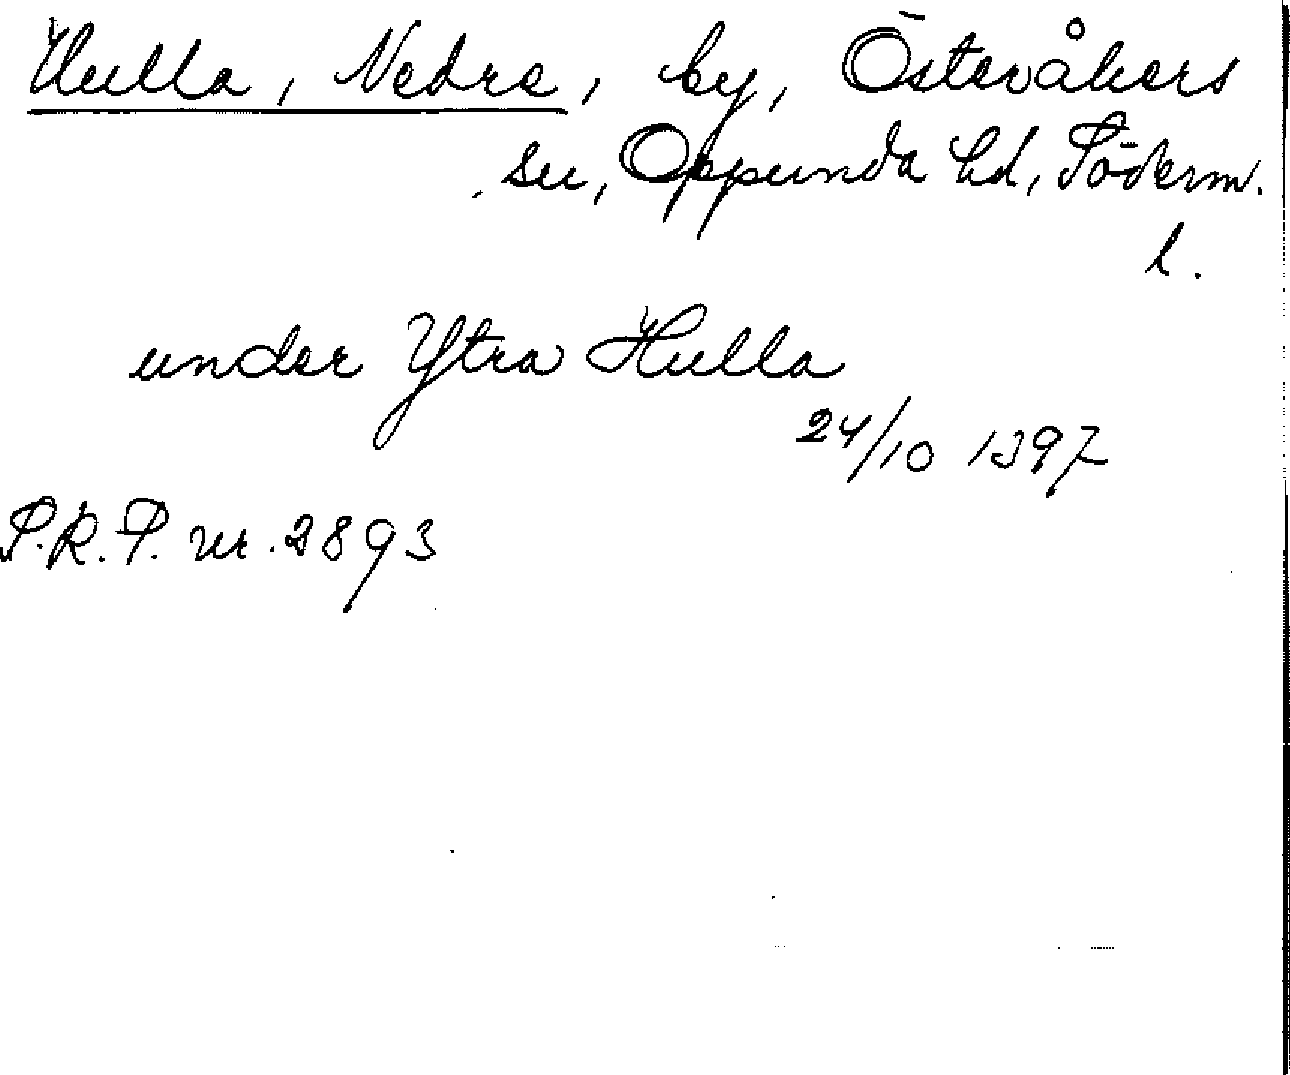 Hulla, Nedre, by, Österåkers
sn, Oppunda hd, Söderm.
l.
under Ytra Hulla
24/10 1397
S.R.P. nr. 2893